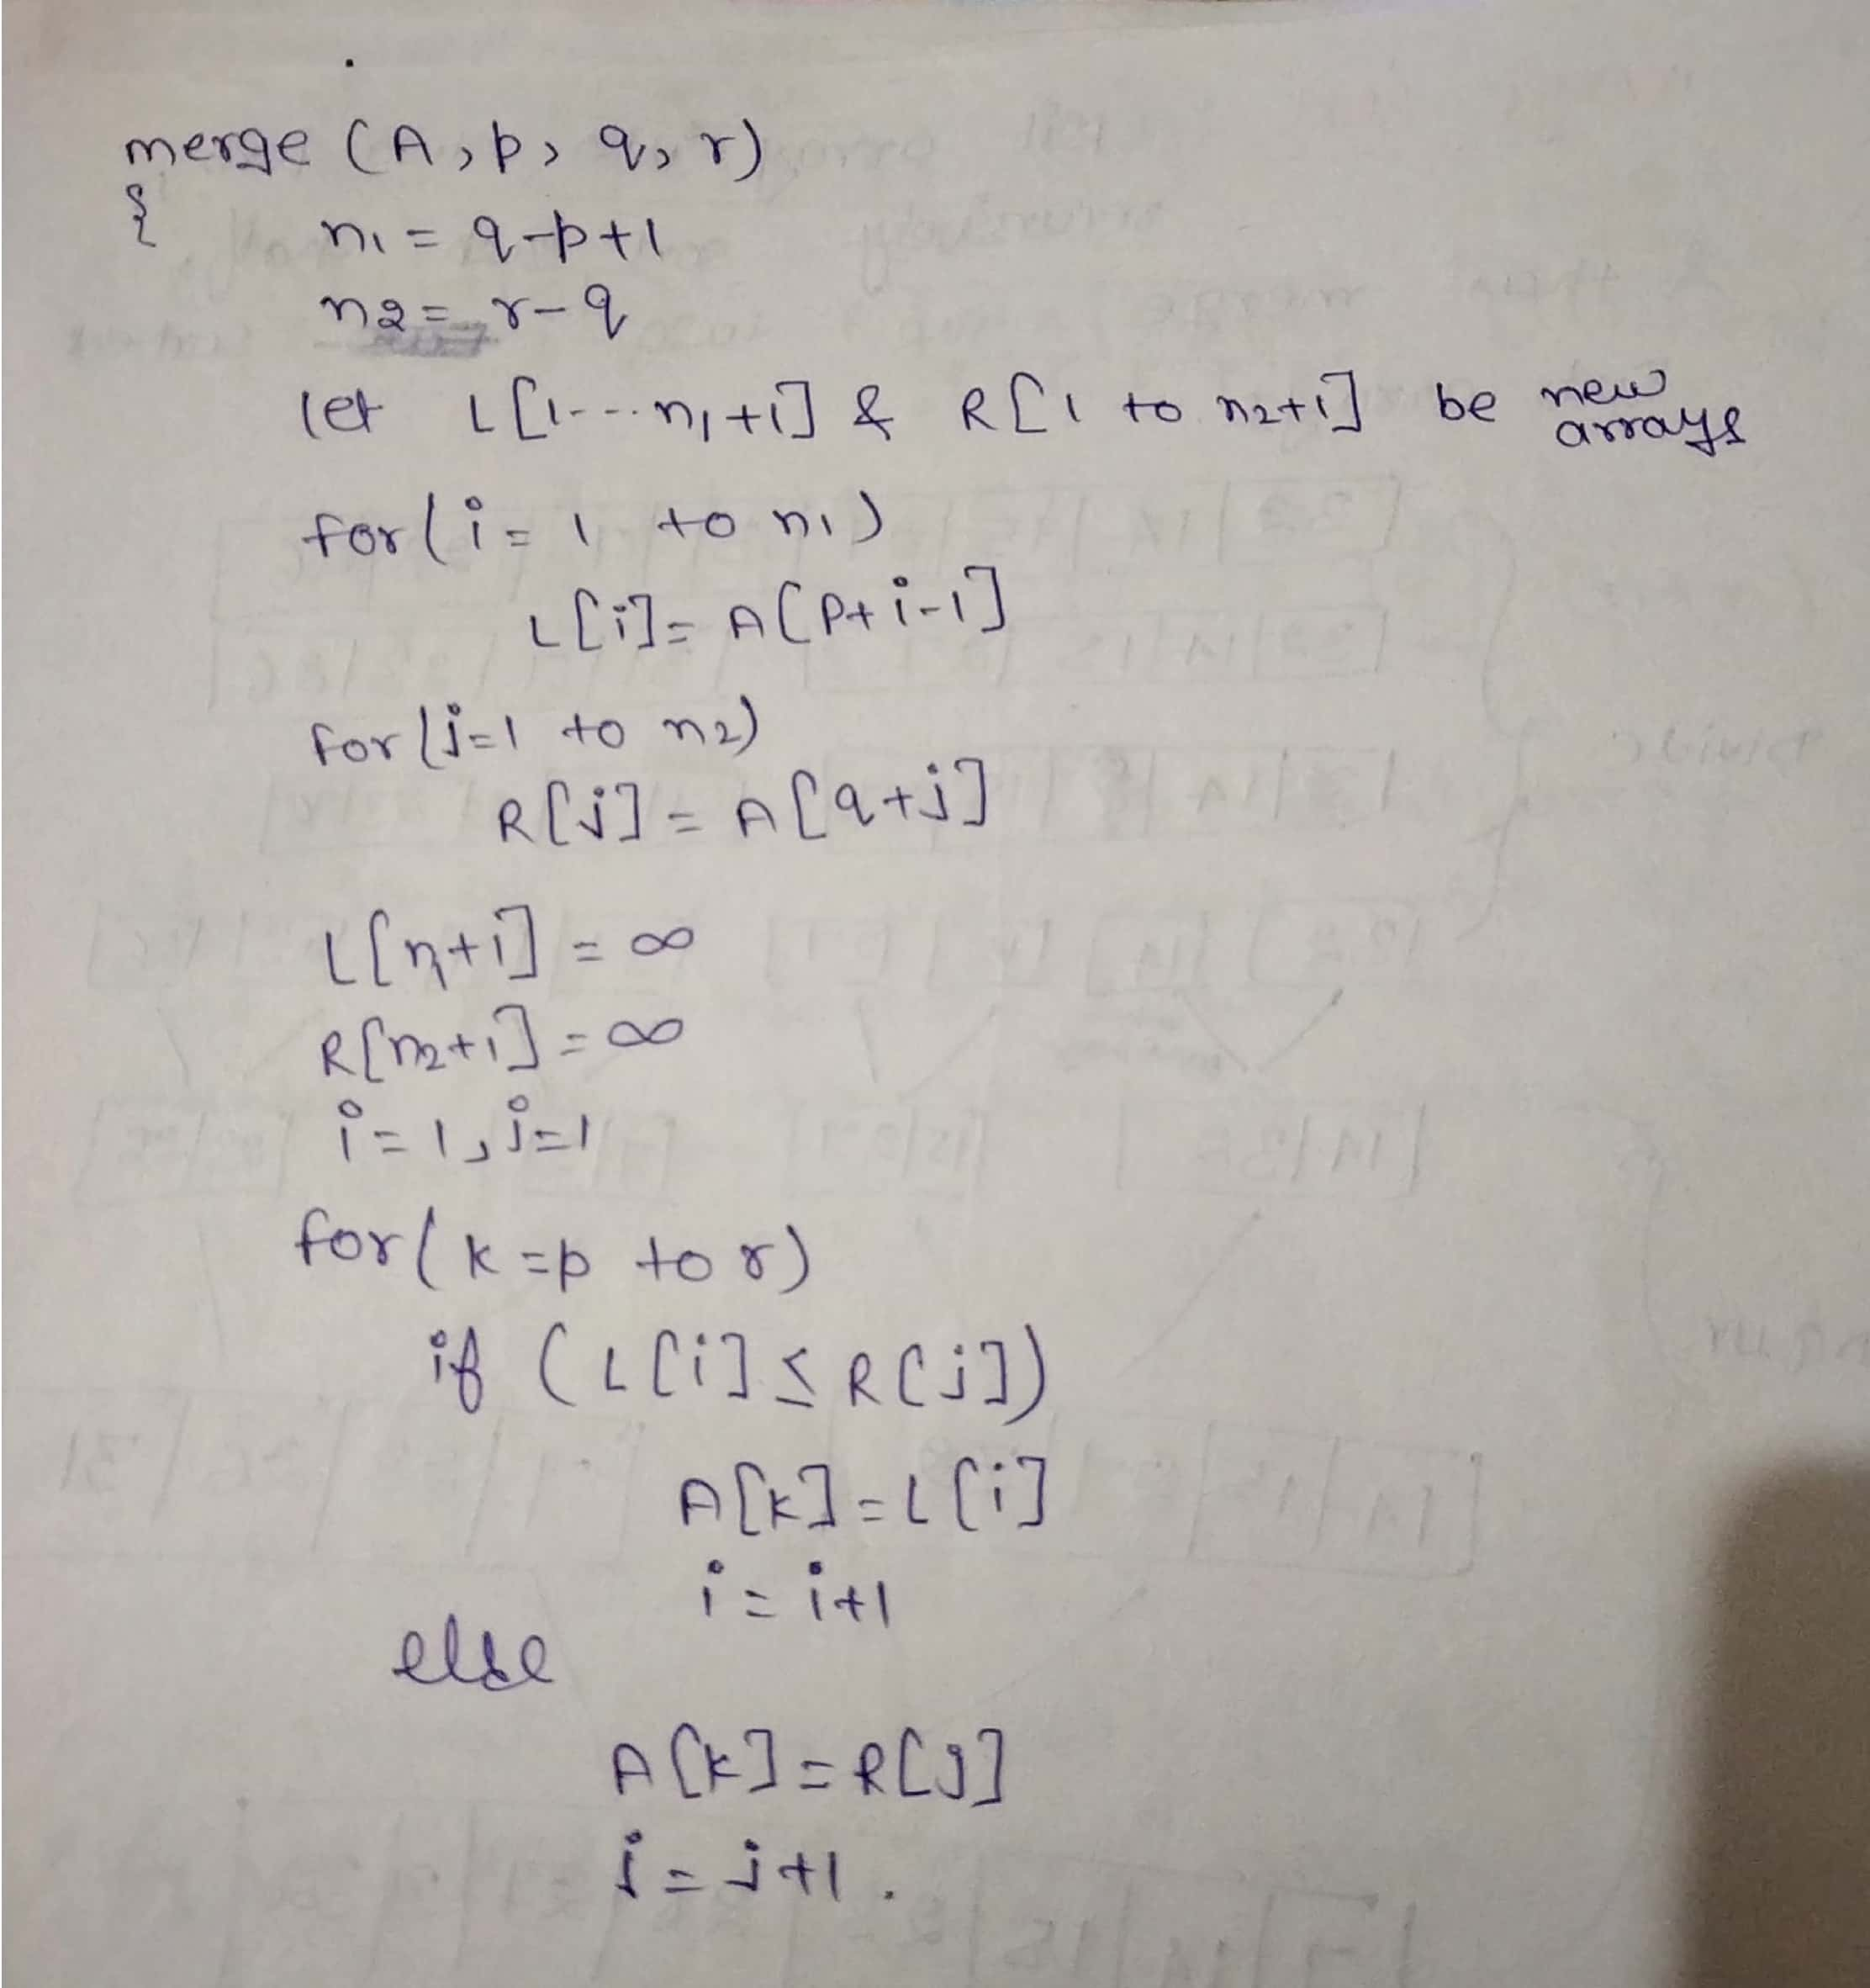 merge (A, p, q, r)
{
n1 = q-p+1
n2 = r-q
let L[1---n1+1] & R[1 to n2+1] be new arrays
for(i = 1 to n1)
L[i] = A[p+i-1]
for(j=1 to n2)
R[j] = A[q+j]
L[n1+1] = ∞
R[n2+1] = ∞
i = 1, j=1
for(k=p to r)
if (L[i] ≤ R[j])
A[k] = L[i]
i = i+1
else
A[k] = R[j]
j = j+1.